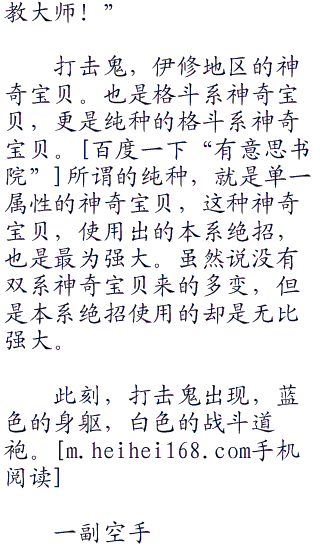 教大师！”
打击鬼，伊修地区的神
奇宝贝。也是格斗系神奇宝
贝，更是纯种的格斗系神奇
宝贝。[百度一下“有意思书
院”]所谓的纯种，就是单一
属性的神奇宝贝，这种神奇
宝贝，使用出的本系绝招，
也是最为强大。虽然说没有
双系神奇宝贝来的多变，但
是本系绝招使用的却是无比
强大。
此刻，打击鬼出现，蓝
色的身躯，白色的战斗道
袍。[m.heihei168.com手机
阅读]
一副空手